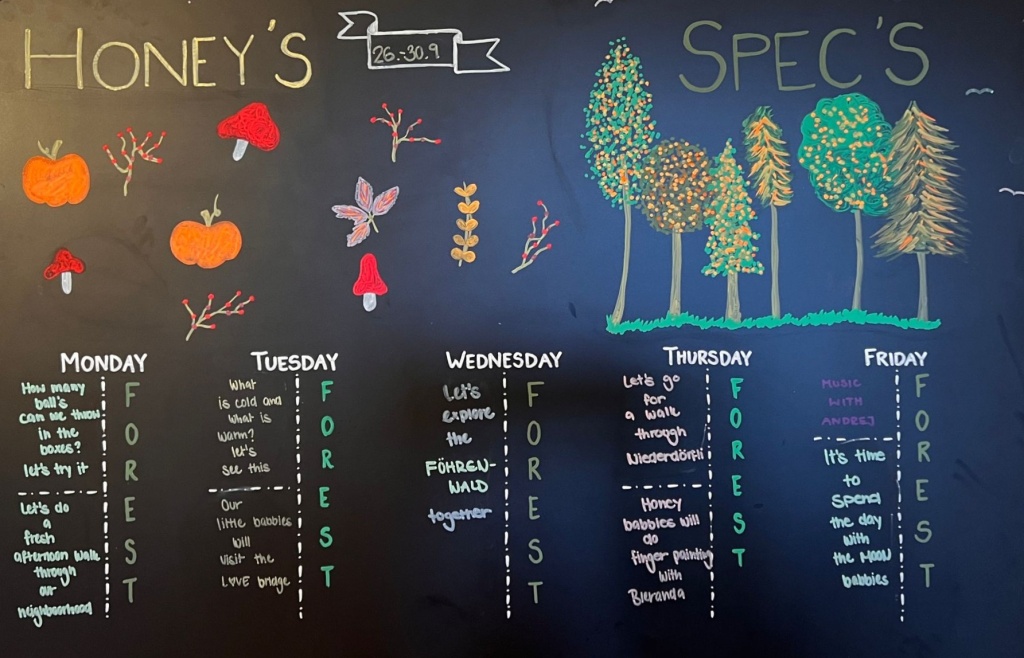 HONEY'S
26.-30.9
SPEC'S
MONDAY
How many
ball's
can we throw
in the
boxes?
let's try it
Let's do
a
fresh
afternoon walk
through
our
neighborhood
F
O
R
E
S
T
TUESDAY
What
is cold and
what is
warm?
let's
see this
Our
little babbies
will
visit the
LOVE bridge
F
O
R
E
S
T
WEDNESDAY
Let's
explore
the
FÖHREN-
WALD
together
F
O
R
E
S
T
THURSDAY
Let's go
for
a walk
through
Niederdörfli
Honey
babbies will
do
finger painting
with
Bleranda
F
O
R
E
S
T
FRIDAY
MUSIC
WITH
ANDREJ
It's time
to
spend
the day
with
the MOON
babbies
F
O
R
E
S
T